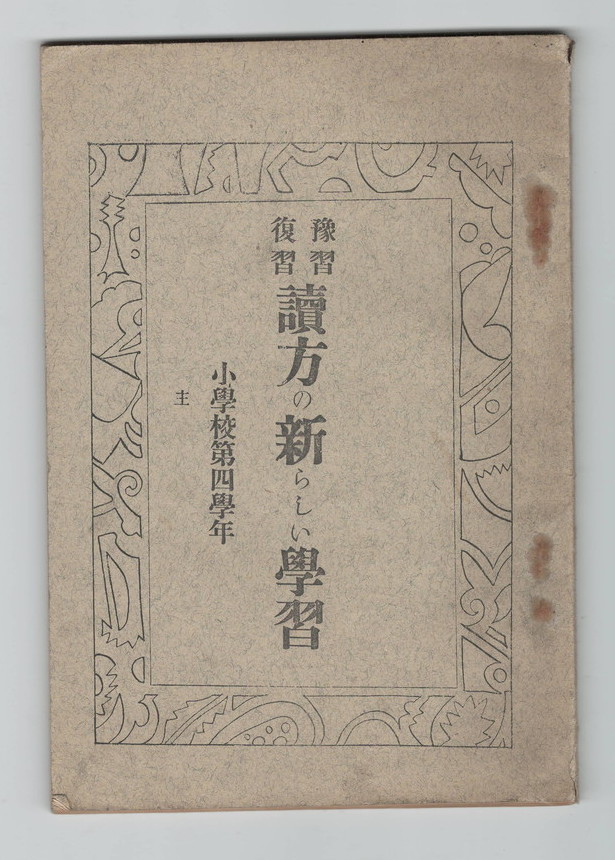 豫習
復習
讀方の新らしい學習
小學校第四學年
主